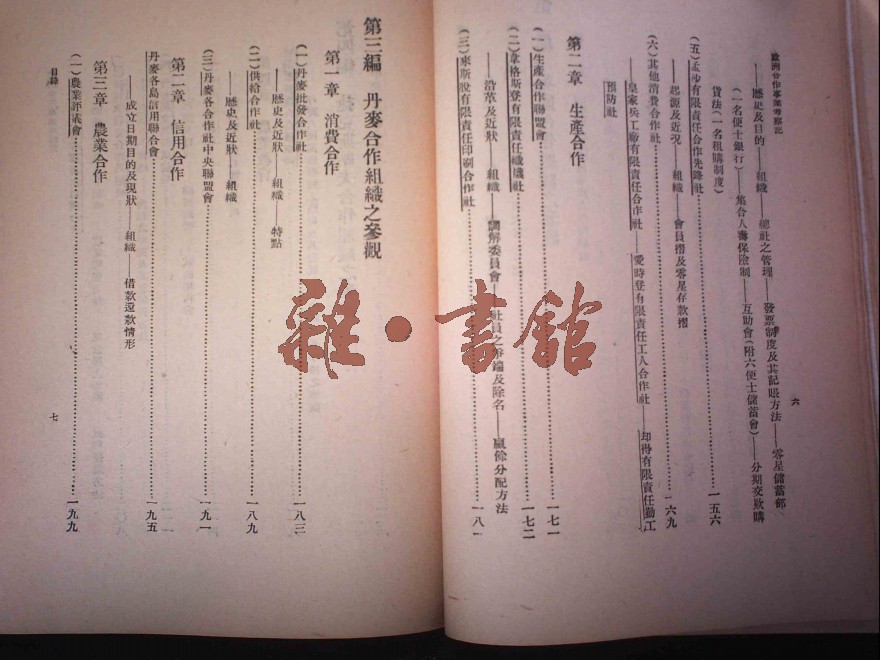 歐洲合作事業考察記
——歷史及目的——組織——總社之管理——發票制度及其記賬方法——零星儲蓄部、
(一名便士銀行)——集合人壽保險制——互助會(附六便士儲蓄會)——分期交款購
貨法(一名租購制度)
(五)孟沙有限責任合作先鋒社……一五六
——起源及近況——組織——會員摺及零星存款摺
(六)其他消費合作社……一六九
——皇家兵工廠有限責任合作社——愛時登有限責任工人合作社——却得有限責任勤工
預防社
第二章 生產合作
(一)生產合作聯盟會……一七一
(二)拿格斯登有限責任織襪社……一七二
——沿革及近狀——組織——調解委員會——社員之爭端及除名——贏餘分配方法
(三)來斯股有限責任印刷合作社……一八一
六
第三編 丹麥合作組織之參觀
第一章 消費合作
(一)丹麥批發合作社……一八三
——歷史及近狀——組織——特點
(二)供給合作社……一八九
——歷史及近狀——組織
(三)丹麥各合作社中央聯盟會……一九一
第二章 信用合作
丹麥各島信用聯合會……一九五
——成立日期目的及現狀——組織——借款還款情形
第三章 農業合作
(一)農業評議會……一九九
目錄
七
雜·書館